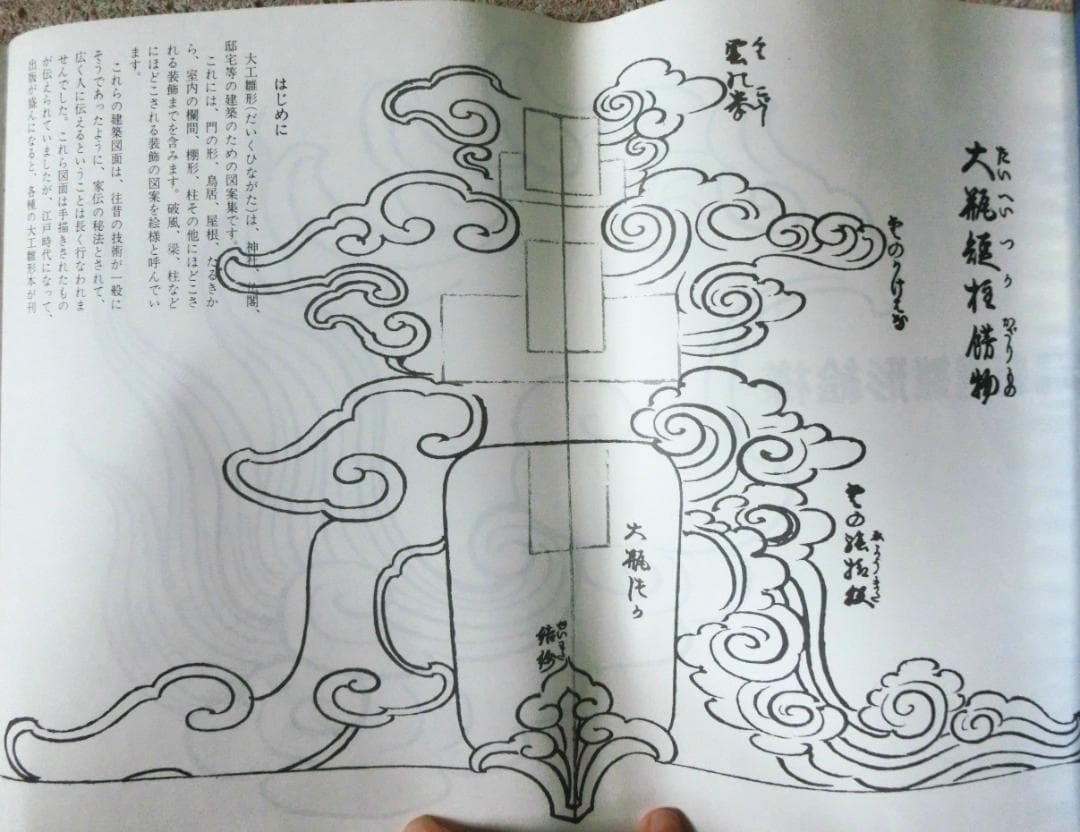 大瓶短柱餝物
大瓶つか
はじめに
大工雛形(だいくひながた)は、神社、仏閣、
邸宅等の建築のための図案集です。
これには、門の形、鳥居、屋根、たるきか
ら、室内の欄間、棚形、柱その他にほどこさ
れる装飾までを含みます。破風、梁、柱など
にほどこされる装飾の図案を絵様と呼んでい
ます。
これらの建築図面は、往昔の技術が一般に
そうであったように、家伝の秘法とされて、
広く人に伝えるということは長く行なわれま
せんでした。これら図面は手描きされたもの
が伝えられていましたが、江戸時代になって、
出版が盛んになると、各種の大工雛形本が刊